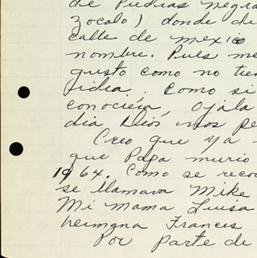 de Piedras Negra
Zocalo) donde di
calle de mexico
nombre. Pues me
gusto como no tien
idea. Como si
conociera Ojala
dia Dios nos pe
Creo que ya
que Papa murio
1964. Como se reco
se llamava Mike
Mi Mama Luisa
hermana Frances
Por parte de